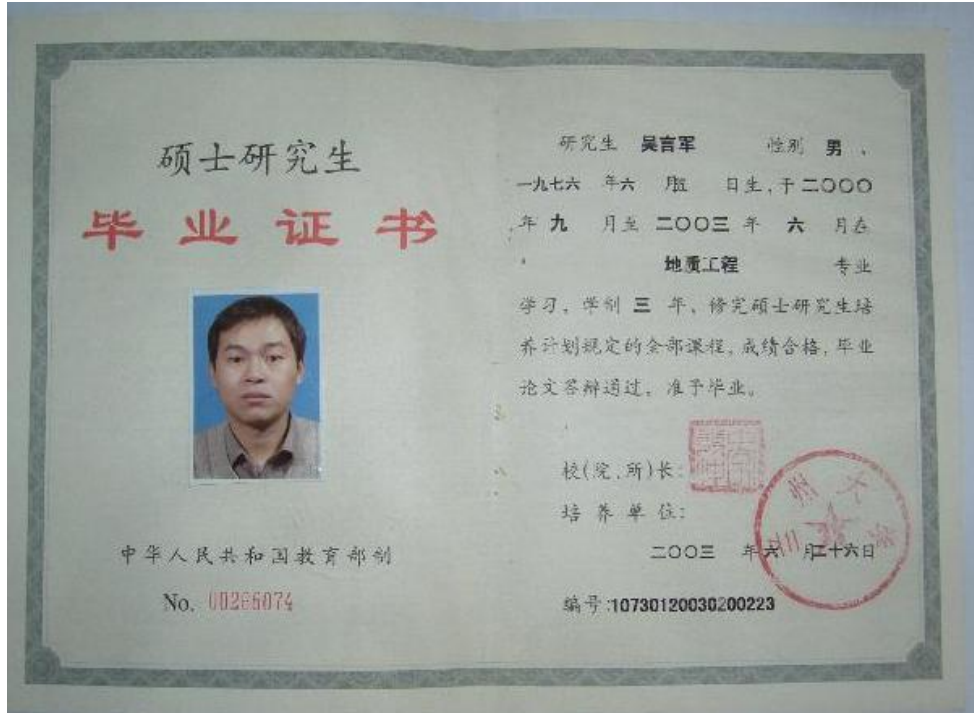 硕士研究生
毕业证书
中华人民共和国教育部制
No. 00266074
研究生 吴言军 性别 男 、
一九七六 年六 月五 日生,于二〇〇〇
年 九 月至 二〇〇三 年 六 月在
地质工程 专业
学习,学制 三 年、修完硕士研究生培
养计划规定的全部课程,成绩合格,毕业
论文答辩通过,准予毕业。
校(院、所)长:
培养单位:
二〇〇三 年六 月二十六日
编号:10730120030200223
兰州大学